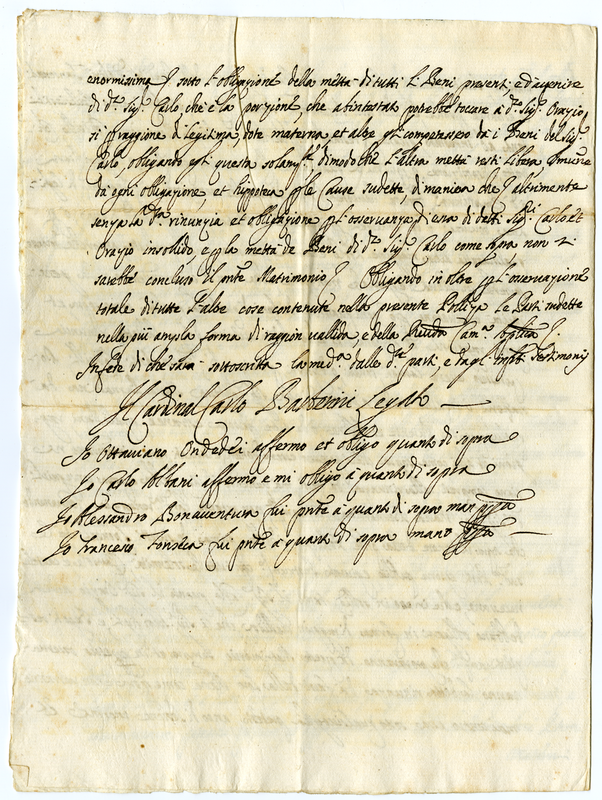 enormissima p. sotto l'obligazione della mettà di tutti l. Beni presenti, e d'avenire
di d.º Sig.r Carlo, che è la porzione, che ab intestato potrebbe tocare à d.º Sig.r Orazio
si p raggione di Legitima, dote materna, et altre gli competessero da i Beni del Sig.r
Carlo, obligando questa solam.te dimodo che l'altra mettà resti libera, immune
da ogni obligazione, et hippoteca p le Cause sudette, di maniera che p. altrimente
senza la d.ta rinunzia et obligazione p l'osservanza di essa di detti Sig.ri Carlo, et
Orazio insolido, e p la mettà de Beni di d.º Sig.r Carlo come sopra non si
sarebbe concluso il pnte Matrimonio p. Obligando in oltre p l'osservazione
totale di tutte l'altre cose contenute nella presente Poliza le Parti sudette
nella più ampla forma di raggion vallida, e della Reuda Cam.a Aplica p.
In fede di che sarà sottoscritta la med.a dalle d.te parti, e dagl' infti Testimonij
Il Cardinal Carlo Barberini Legato
Io Ottaviano Ondedei affermo et obligo quanto di sopra
Io Carlo Albani affermo e mi obligo à quanto di sopra
Io Alessandro Bonaventura fui pnte à quanto di sopra mano ppa
Io Francesco Fonseca fui pnte à quanto di sopra mano ppa